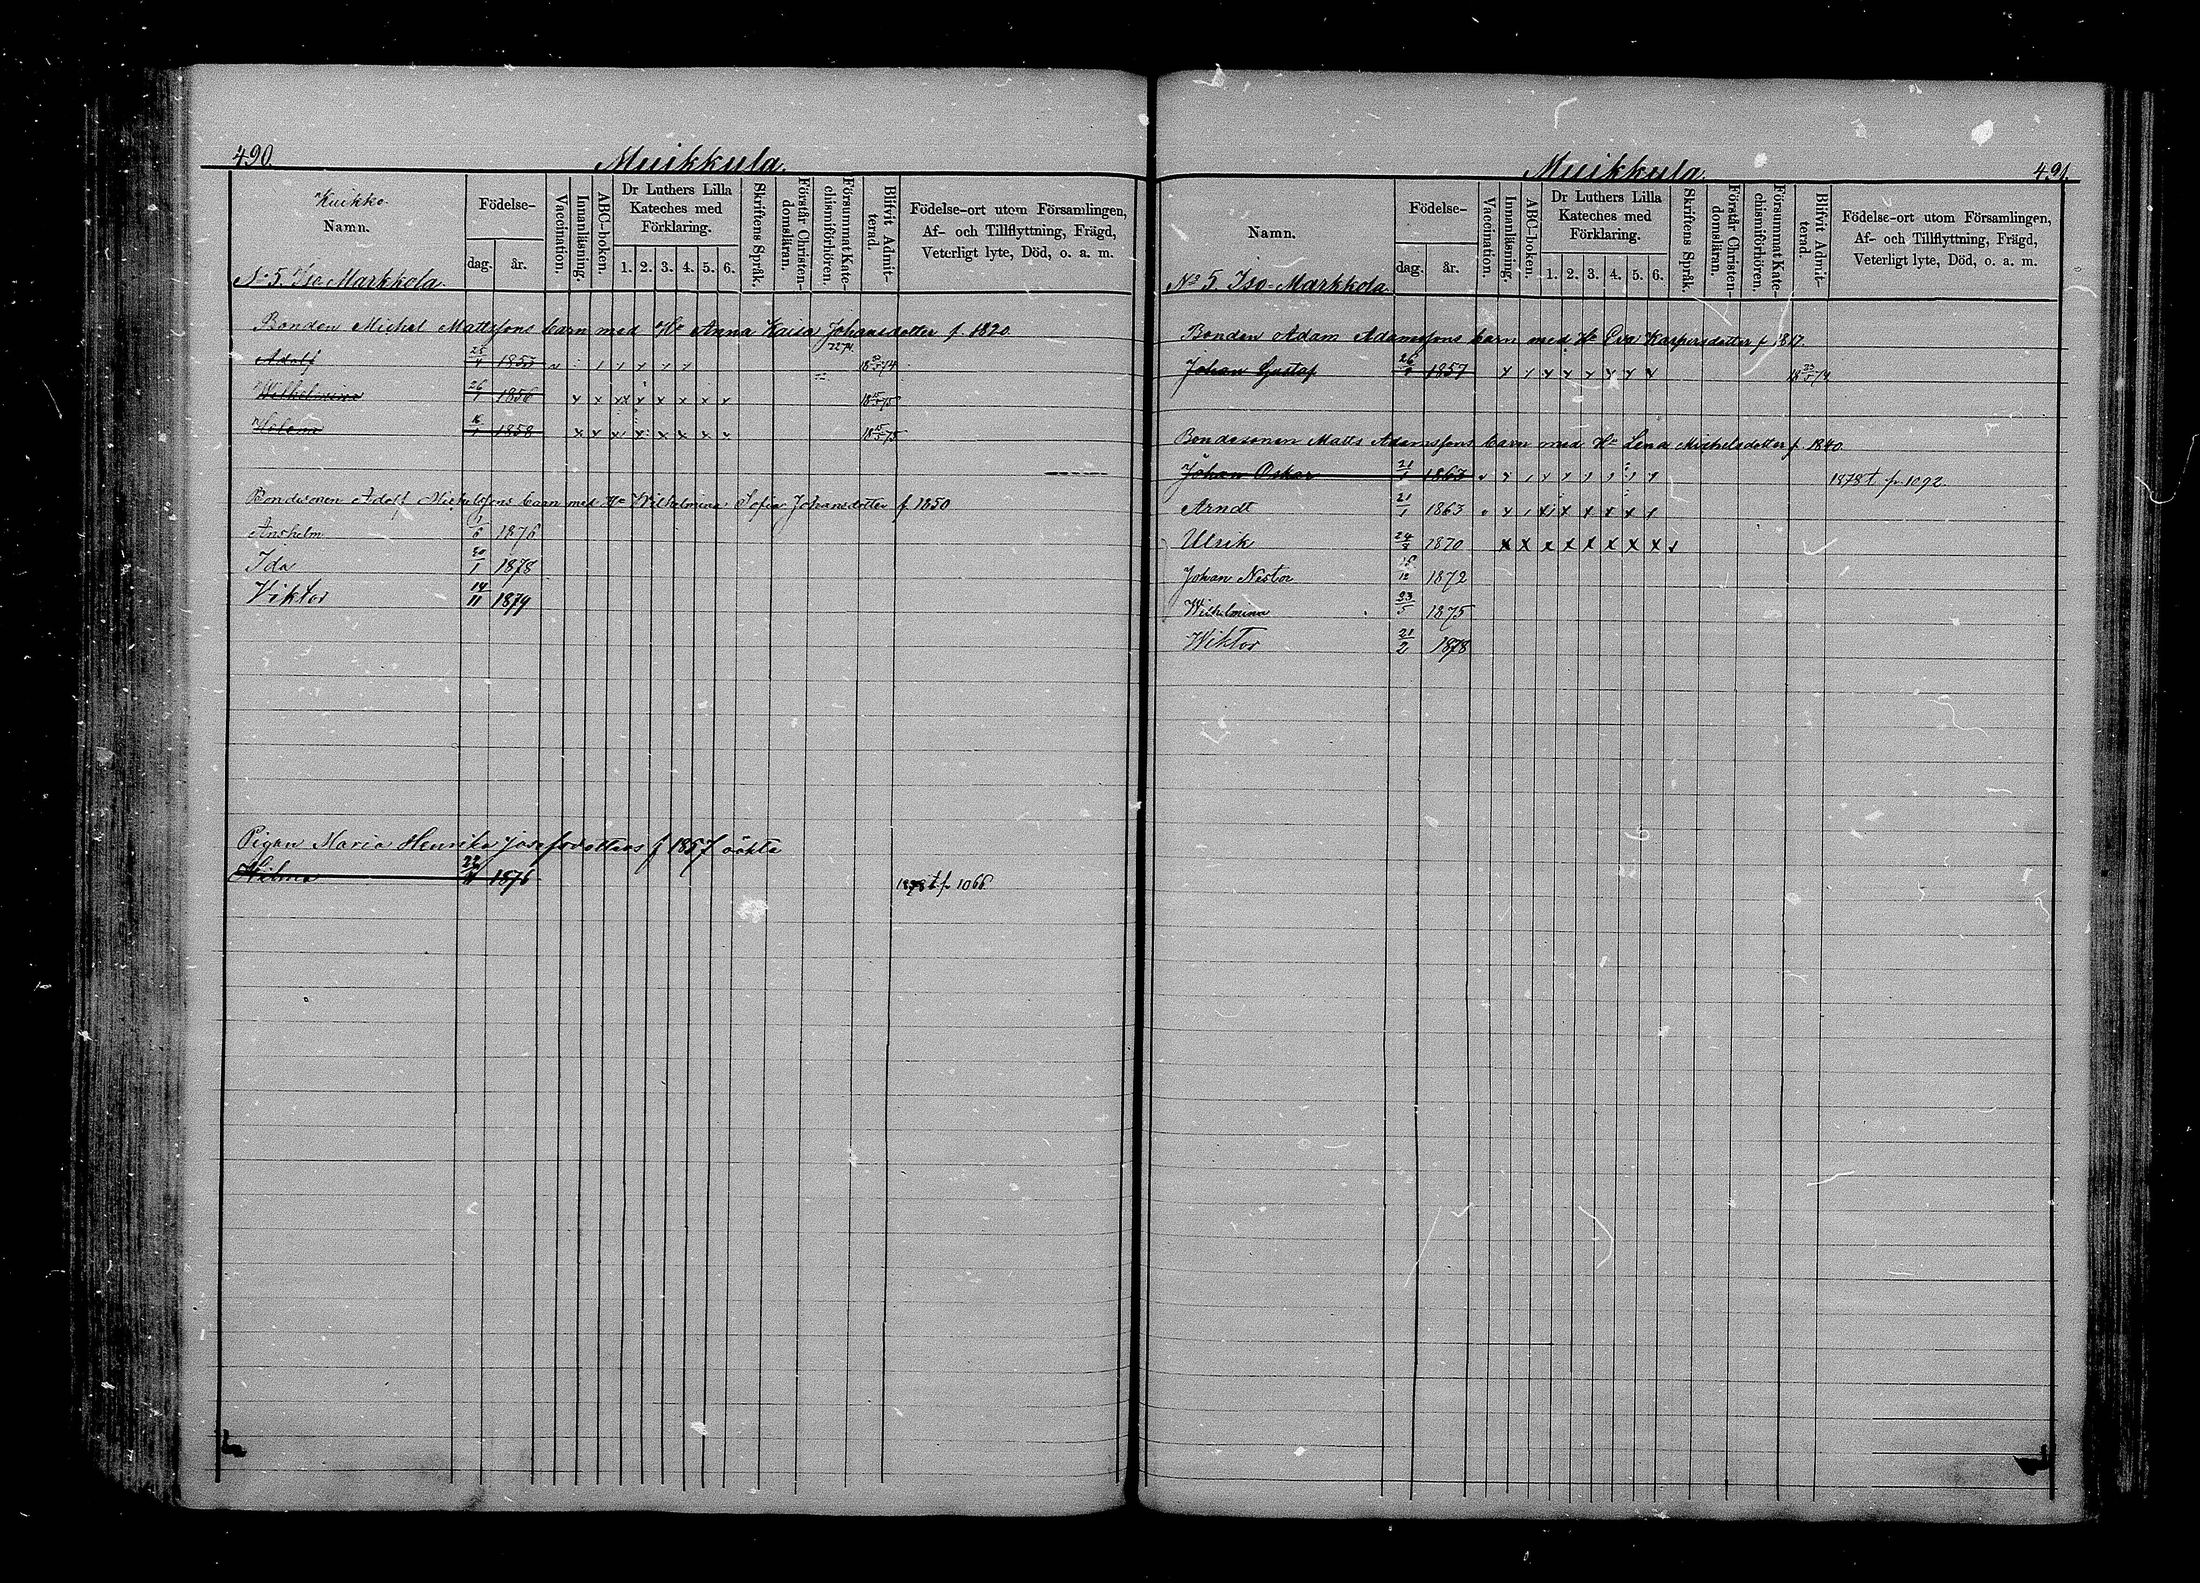 490.
Muikkula.
Kuikko
Namn.
Födelse-
dag.
år.
Vaccination.
Innanläsning.
ABC-boken.
Dr Luthers Lilla
Kateches med
Förklaring.
1. 2. 3. 4. 5. 6.
Skriftens Språk.
Förstår Christen-
domsläran.
Försummat Kate-
chismiförhören.
Blifvit Admit-
terad.
Födelse-ort utom Församlingen,
Af- och Tillflyttning, Frägd,
Veterligt lyte, Död, o. a. m.
No 5. Iso Markkola.
Bonden Michel Mattssons barn med Hu Anna Kaisa Johansdotter f. 1820.
Adolf 1853
Wilhelmina 26 1856
Helena 1858
Bondesonen Adolf Michelssons barn med Hu Wilhelmina Sofia Johansdotter f 1850
Anshelm 1/6 1876
Ida 30/1 1878
Viktor 14/11 1879
Pigan Maria Henrika Josefsdotters f 1857 oäkta
Hilma 22/11 1876 1878 t. p. 1066
491.
Muikkula
Namn.
Födelse-
dag.
år.
Vaccination.
Innanläsning.
ABC-boken.
Dr Luthers Lilla
Kateches med
Förklaring.
1. 2. 3. 4. 5. 6.
Skriftens Språk.
Förstår Christen-
domsläran.
Försummat Kate-
chismiförhören.
Blifvit Admit-
terad.
Födelse-ort utom Församlingen,
Af- och Tillflyttning, Frägd,
Veterligt lyte, Död, o. a. m.
No 5. Iso-Markkola
Bonden Adam Adamssons barn med Hu Eva Kaspersdotter f. 1817.
Johan Gustaf 26 1857
Bondesonen Matts Adamssons barn med Hu Lena Michelsdotter f 1840.
Johan Oskar 21/1 1863 1878 t. p. 1092
Arndt 21/1 1863
Ulrik 24 1870
Johan Nestor 1872
Wilhelmina 23/5 1875
Wiktor 21/2 1878